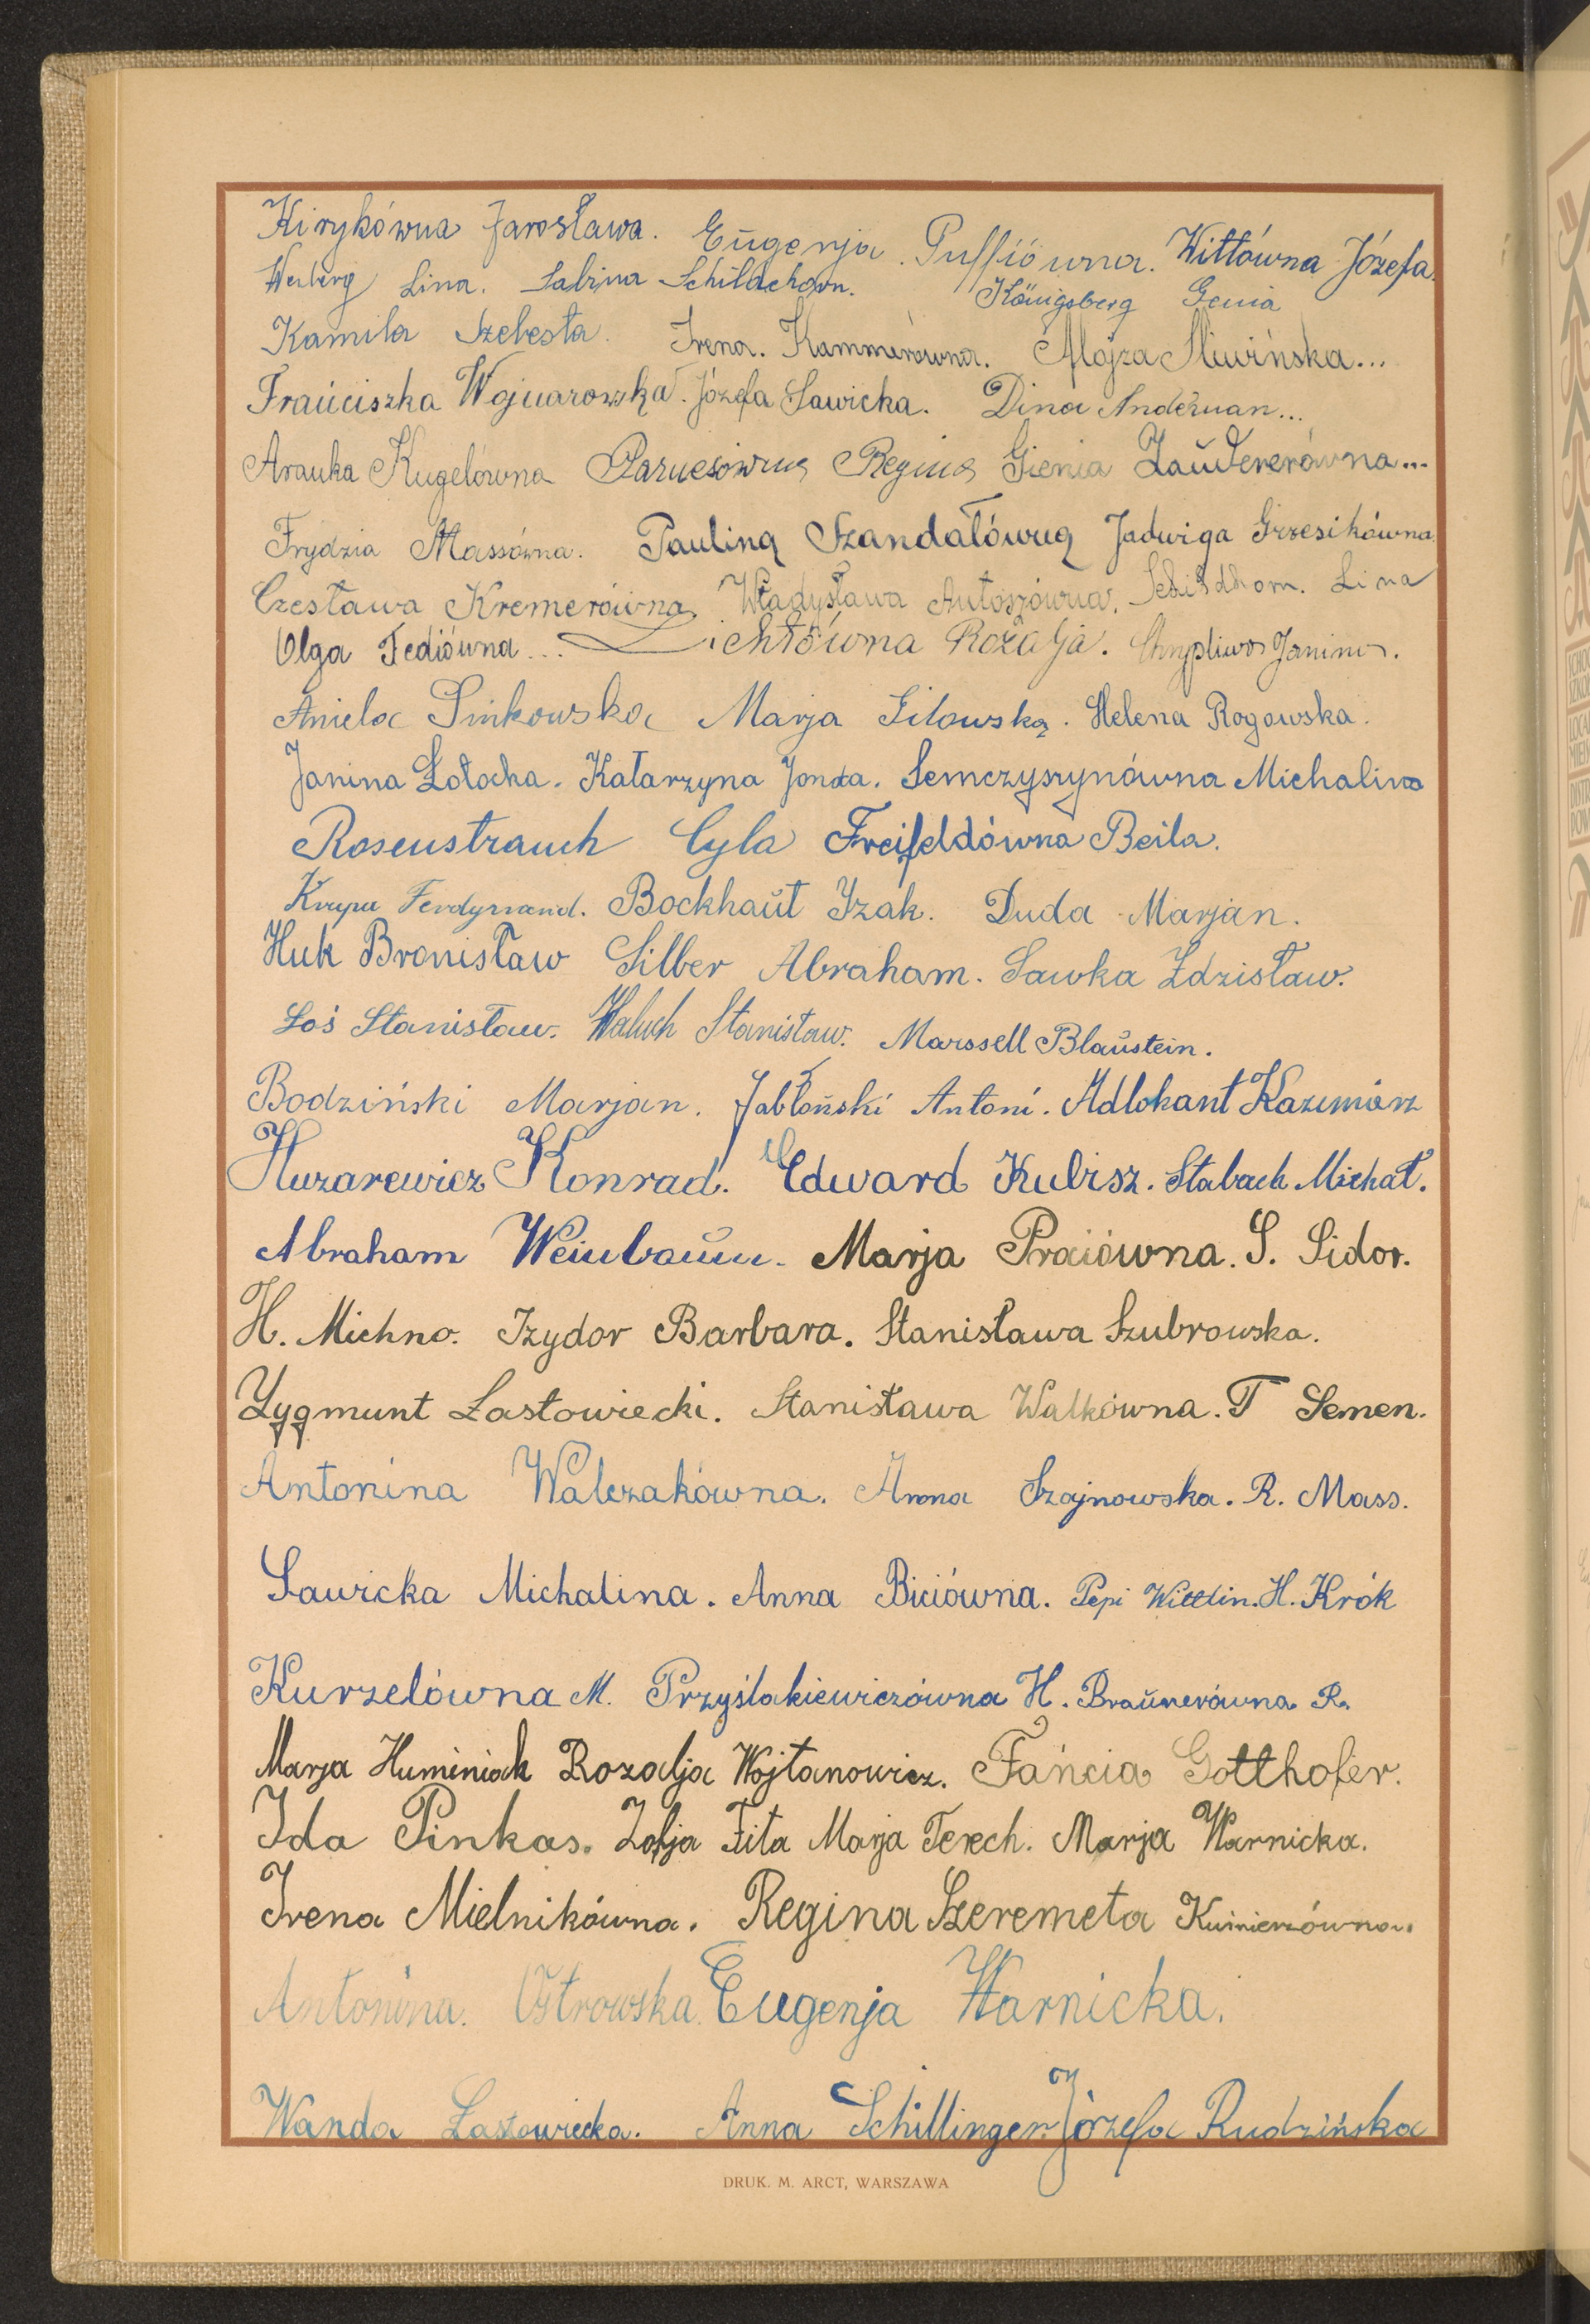 Kirykówna Jarosława. Eugenja Puffiówna. Wittówna Józefa.
Lina. Sabina Schildehorn. Königsberg Genia
Kamila Szebesta. Irena. Kammerówna. Alojza Śliwińska...
Franciszka Wojnarowska. Józefa Sawicka. Dina Anderman...
Kugelówna Parnesówna Regina Gienia Zaudererówna...
Frydzia Massówna. Paulina Szandałówna Jadwiga Grzesikówna.
Czesława Kremerówna, Władysława Antoszówna. Schildhorn. Lina
Olga Fediówna... Lichtówna Rozalja. Chrypliwa Janina.
Aniela Sinkowska Marja Gilowska. Helena Rogowska.
Janina Łotocka. Katarzyna Jonda. Semczyszynówna Michalina
Rosenstrauch Cyla Freifeldówna Beila.
Krupa Ferdynand. Bockhaut Izak. Duda Marjan.
Huk Bronisław Silber Abraham. Sawka Zdzisław.
Łoś Stanisław. Waluch Stanisław. Marssell Blaustein.
Bodziński Marjan. Jabłoński Antoni. Adlokant Kazimierz
Huzarewicz Konrad. Edward Kubisz. Stabach Michał.
Abraham Weinbaum. Marja Praiówna. S. Sidor.
H. Michno. Izydor Barbara. Stanisława Szubrowska.
Zygmunt Łastowiecki. Stanisława Walkówna. T Semen.
Antonina Walczakówna. Anna Szajnowska. R. Mass.
Sawicka Michalina. Anna Biciówna. Pepi Wittlin. H. Krók
Kurzelówna M. Przyślakiewiczówna H. Braunerówna R.
Marja Huminiak Rozalja Wojtanowicz. Fańcia Gotthofer.
Ida Pinkas. Zofja Fita Marja Terech. Marja Warnicka.
Irena Mielnikówna. Regina Szeremeta Kuśnierzówna.
Antonina. Ostrowska. Eugenja Warnicka.
Wanda Łastowiecka. Anna Schillinger. Józefa Rudzińska
DRUK. M. ARCT, WARSZAWA